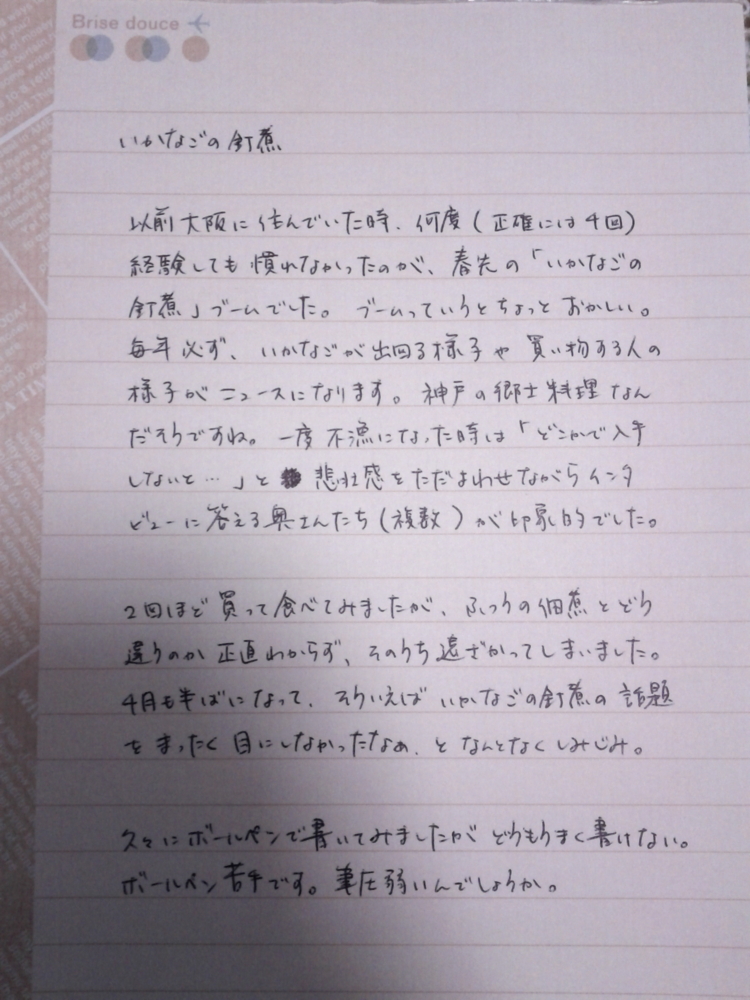 Brise douce
いかなごの釘煮
以前大阪に住んでいた時、何度(正確には4回)
経験しても慣れなかったのが、春先の「いかなごの
釘煮」ブームでした。ブームっていうとちょっとおかしい。
毎年必ず、いかなごが出回る様子や買い物する人の
様子がニュースになります。神戸の郷土料理なん
だそうですね。一度不漁になった時は「どこかで入手
しないと…」と悲壮感をただよわせながらインタ
ビューに答える奥さんたち(複数)が印象的でした。
2回ほど買って食べてみましたが、ふつうの佃煮とどう
違うのか正直わからず、そのうち遠ざかってしまいました。
4月も半ばになって、そういえばいかなごの釘煮の話題
をまったく目にしなかったなぁ、となんとなくしみじみ。
久々にボールペンで書いてみましたがどうもうまく書けない。
ボールペン苦手です。筆圧弱いんでしょうか。